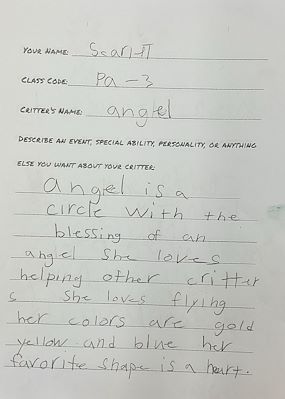 YOUR NAME: Scarlett
CLASS CODE: Pa-3
CRITTER'S NAME: angel
DESCRIBE AN EVENT, SPECIAL ABILITY, PERSONALITY, OR ANYTHING
ELSE YOU WANT ABOUT YOUR CRITTER:
angel is a
circle with the
blessing of an
angel she loves
helping other critter
s she loves flying
her colors are gold
yellow and blue her
favorite shape is a heart.